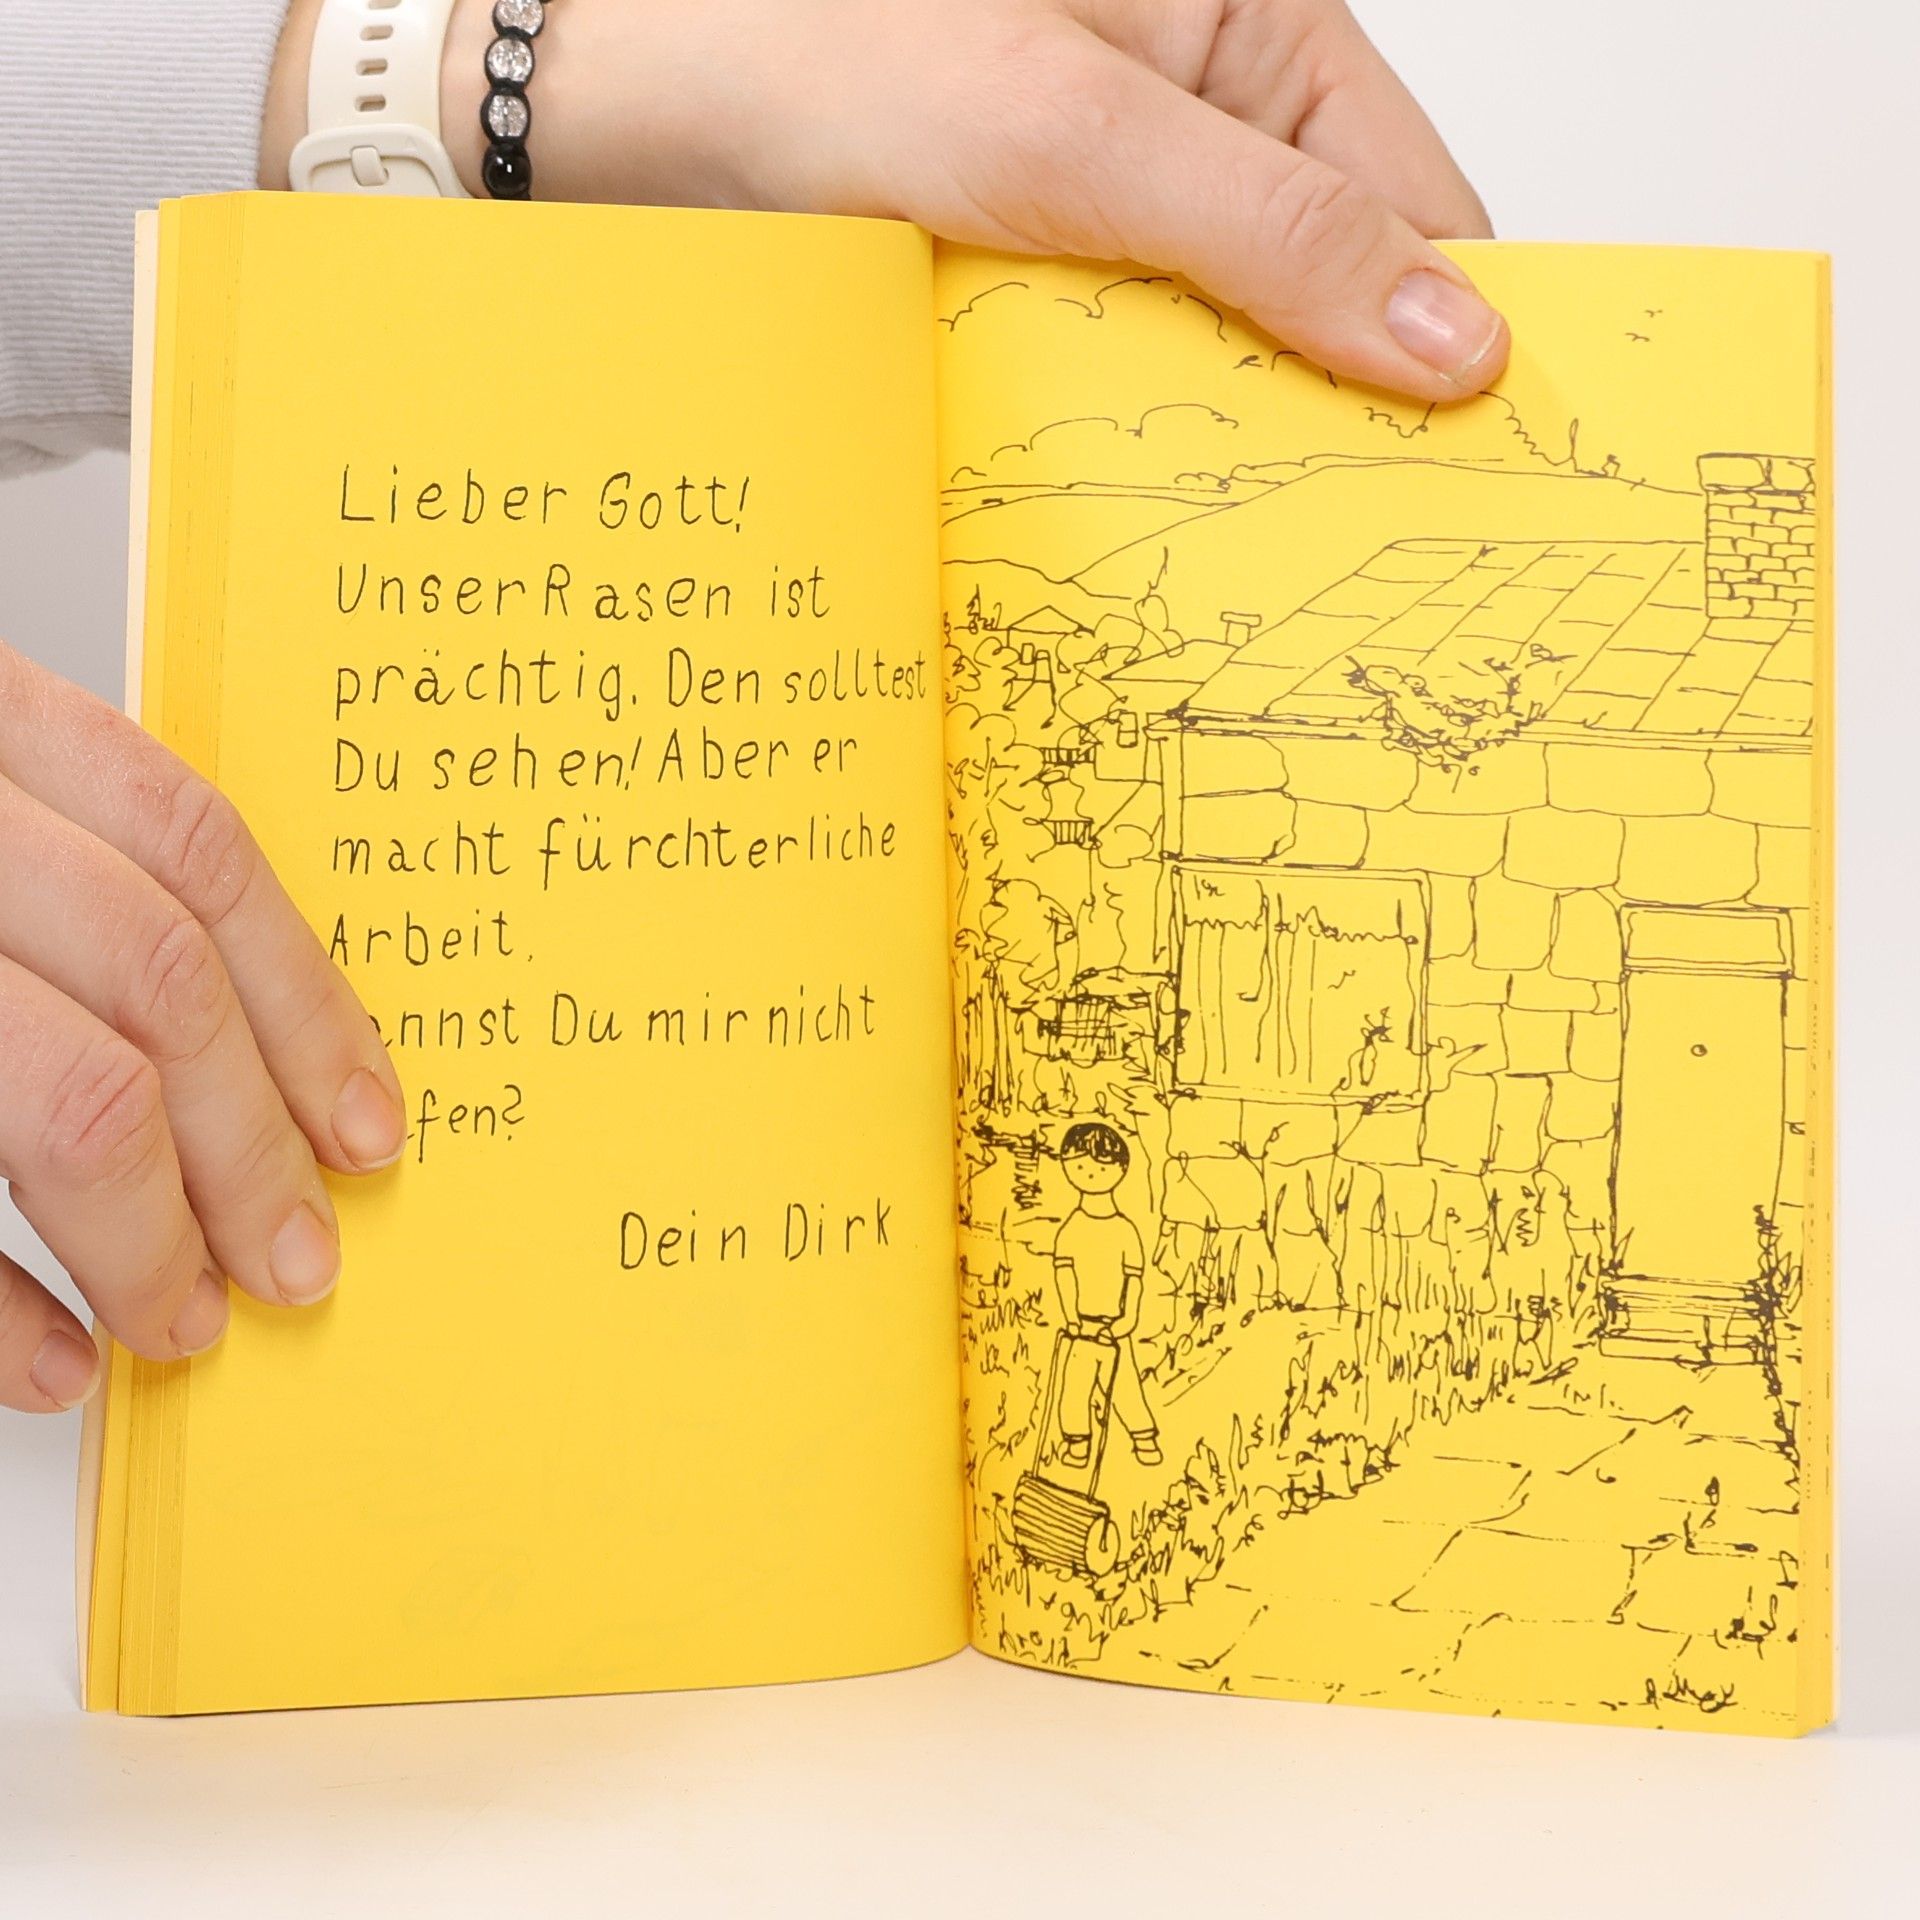 Lieber Gott!
Unser Rasen ist
prächtig. Den solltest
Du sehen! Aber er
macht fürchterliche
Arbeit.
Du mir nicht
Dein Dirk